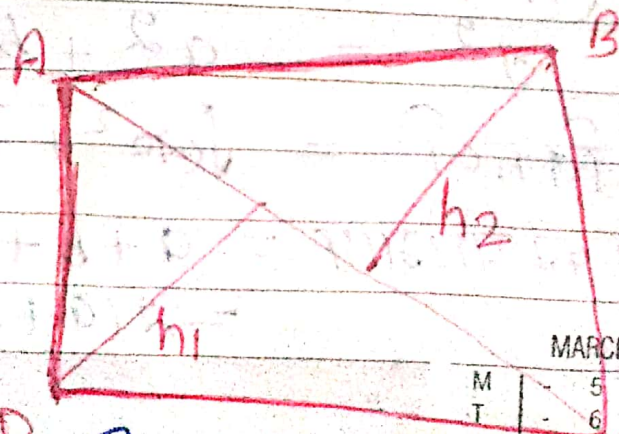 A B
h2
h1
MARC
M - 5
T - 6
D